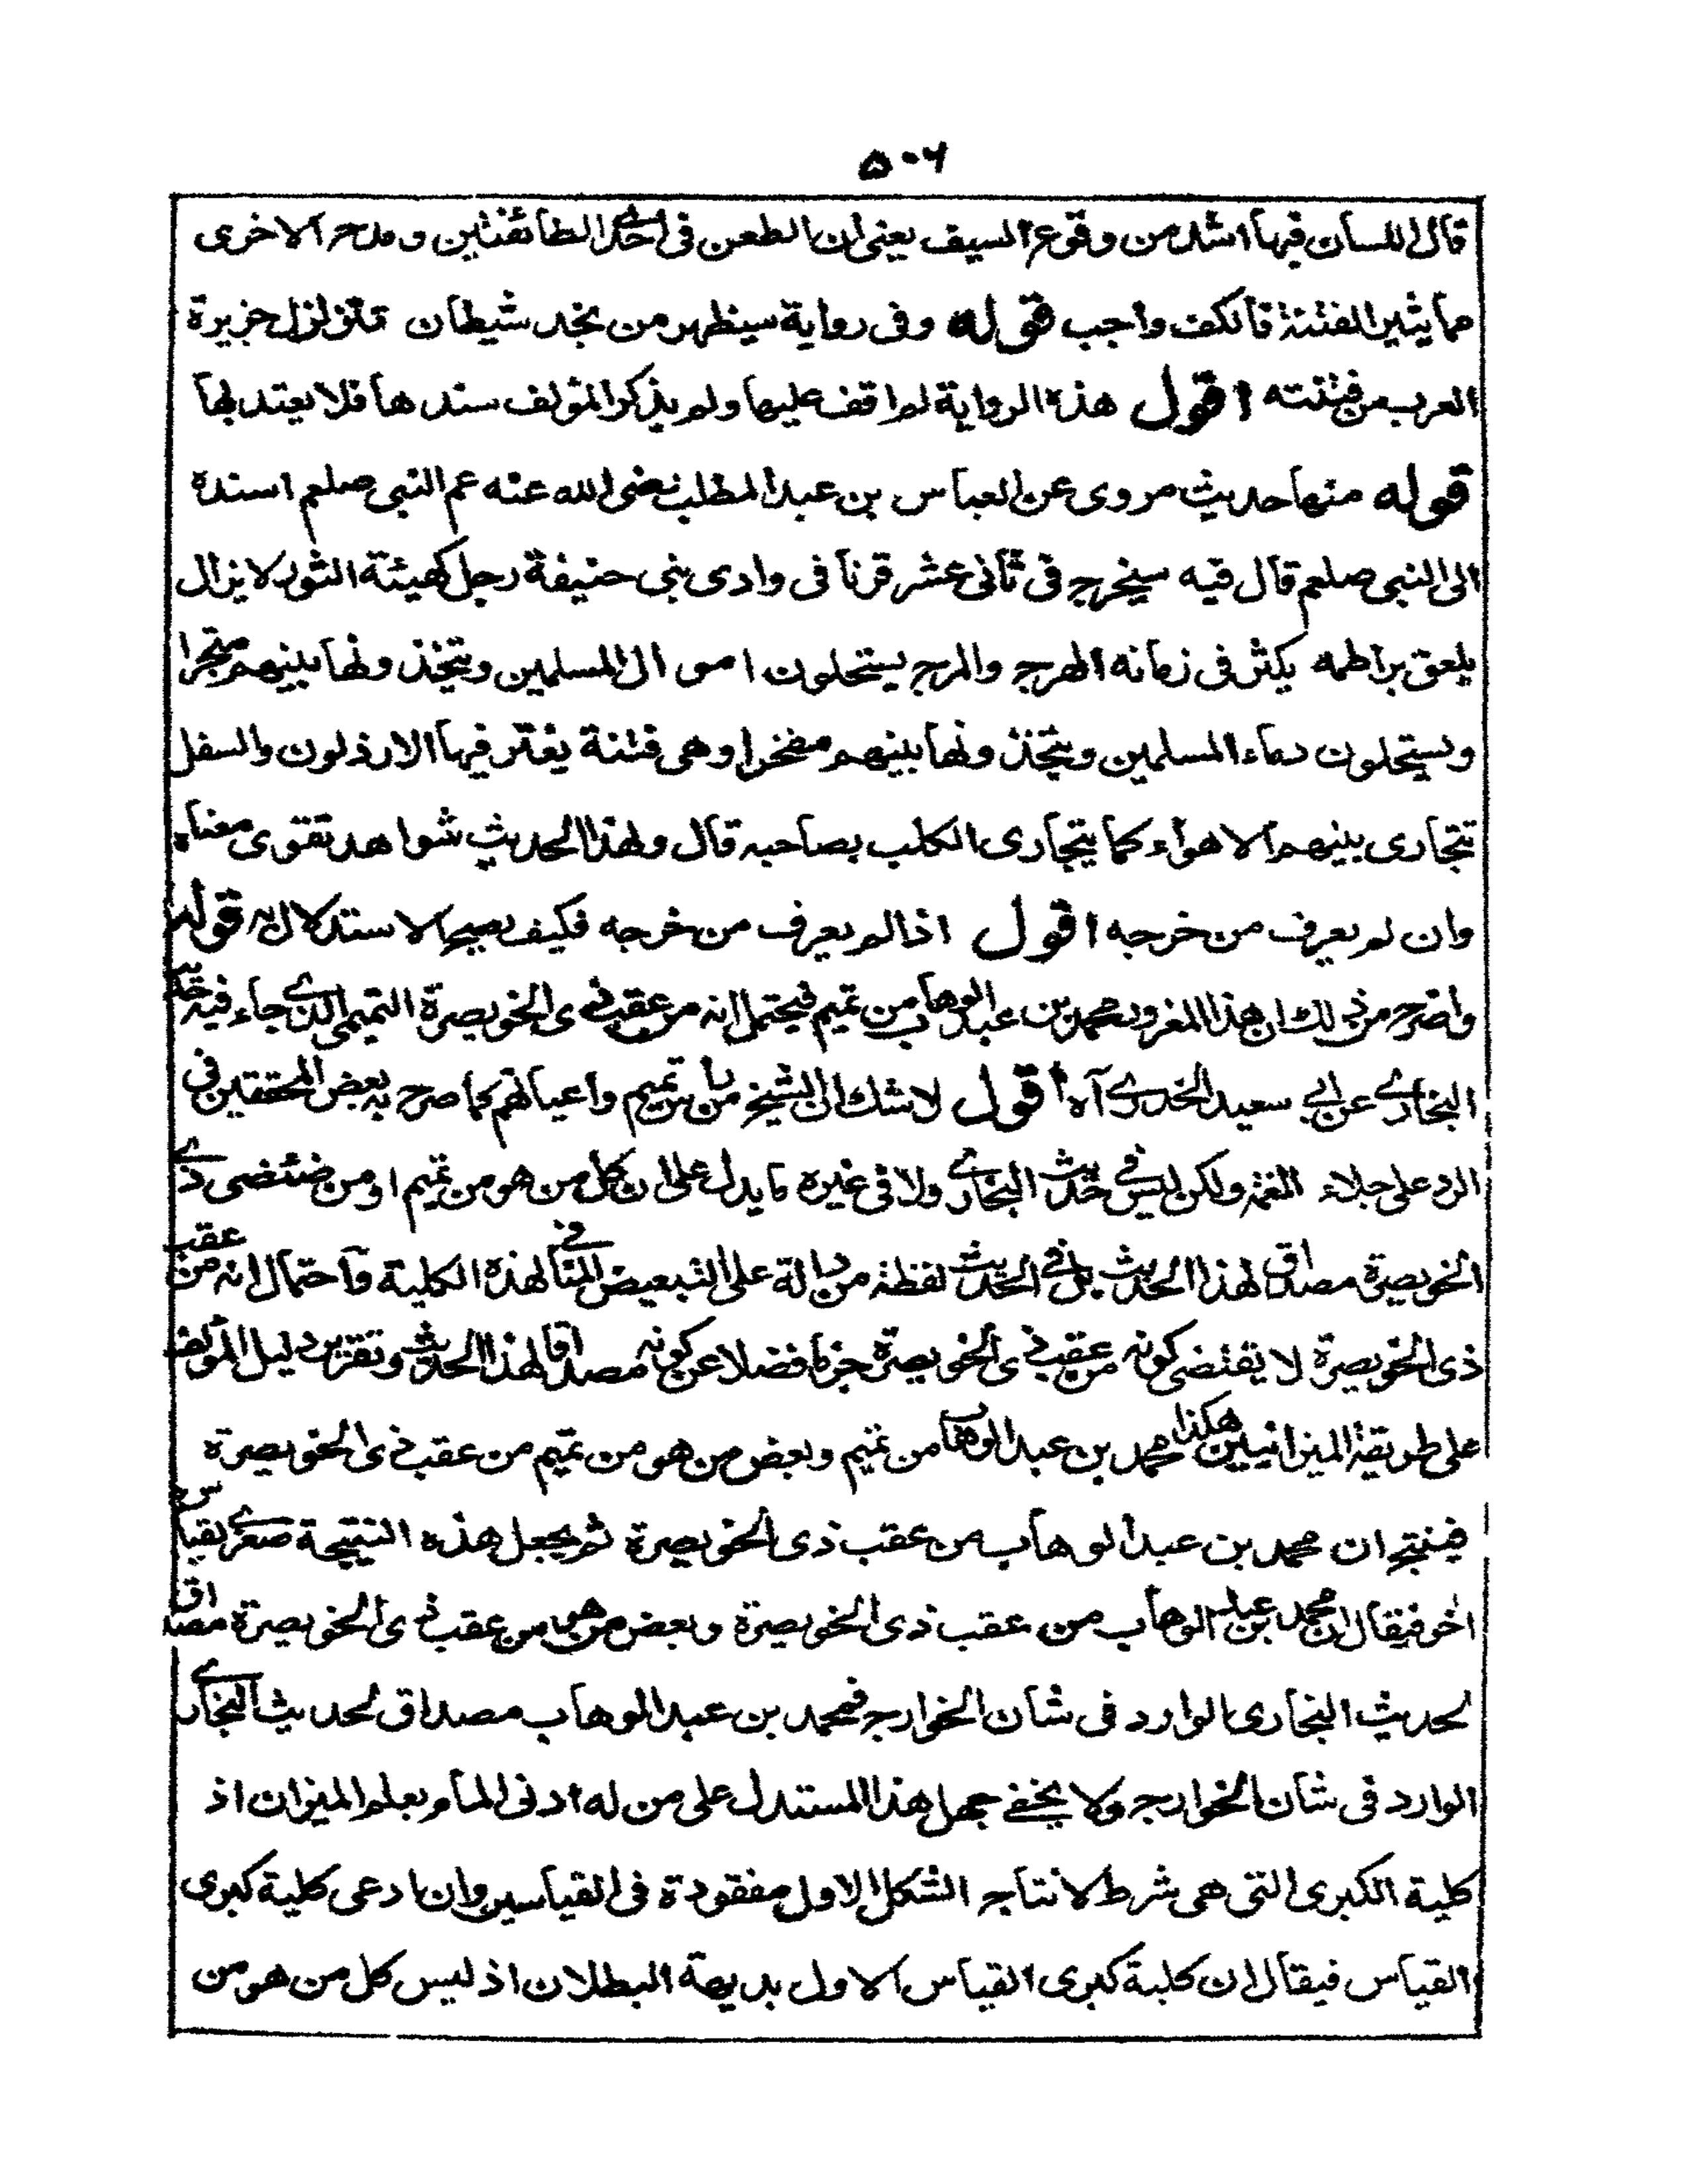 ۵۰۶
قال اللسان فيها اشد من وقوع السيف يعنى ان الطعن فى احدى الطائفتين ومدح الاخرى
مما يثير الفتنة فالكف واجب قوله وفى رواية سيظهر من نجد شيطان تتزلزل جزيرة
العرب من فتنته اقول هذه الرواية لم اقف عليها ولم يذكر المؤلف سندها فلا يعتد بها
قوله منها حديث مروى عن العباس بن عبد المطلب رضى الله عنه عم النبى صلعم اسنده
الى النبى صلعم قال فيه سيخرج فى ثانى عشر قرنا فى وادى بنى حنيفة رجل كهيئة الثور لا يزال
يلعق براطمه يكثر فى زمانه الهرج والمرج يستحلون اموال المسلمين ويتخذونها بينهم متجرا
ويستحلون دماء المسلمين ويتخذونها بينهم مفخرا وهى فتنة يغتر فيها الارذلون والسفل
تتجارى بينهم الاهواء كما يتجارى الكلب بصاحبه قال ولهذا الحديث شواهد تقوى معناه
وان لم يعرف من خرجه اقول اذا لم يعرف من خرجه فكيف يصح الاستدلال به قوله
واصرح من ذلك ان هذا المغرور محمد بن عبد الوهاب من تميم فيحتمل انه من عقب ذى الخويصرة التميمى الذى جاء فيه حديث
البخارى عن ابى سعيد الخدرى آه اقول لا شك ان الشيخ من بنى تميم واعيانهم كما صرح به بعض المحققين فى
الرد على جلاء الغمة ولكن ليس فى حديث البخارى ولا فى غيره ما يدل على ان كل من هو من تميم او من ضئضى ذى
الخويصرة مصداق لهذا الحديث بل فى الحديث لفظة من دالة على التبعيض المنافى لهذه الكلية واحتمال انه من عقب
ذى الخويصرة لا يقتضى كونه من عقب ذى الخويصرة جزما فضلا عن كونه مصداقا لهذا الحديث وتقرير دليل المؤلف
على طريقة الميزانيين هكذا محمد بن عبد الوهاب من تميم وبعض من هو من تميم من عقب ذى الخويصرة
فينتج ان محمد بن عبد الوهاب من عقب ذى الخويصرة ثم يجعل هذه النتيجة صغرى لقياس
اخر فيقال ان محمد بن عبد الوهاب من عقب ذى الخويصرة وبعض من هو من عقب ذى الخويصرة مصداق
لحديث البخارى الوارد فى شان الخوارج فمحمد بن عبد الوهاب مصداق لحديث البخارى
الوارد فى شان الخوارج ولا يخفى جهل هذا المستدل على من له ادنى المام بعلم الميزان اذ
كلية الكبرى التى هى شرط لانتاج الشكل الاول مفقودة فى القياسين وان ادعى كلية كبرى
القياس فيقال ان كلية كبرى القياس الاول بديهة البطلان اذ ليس كل من هو من